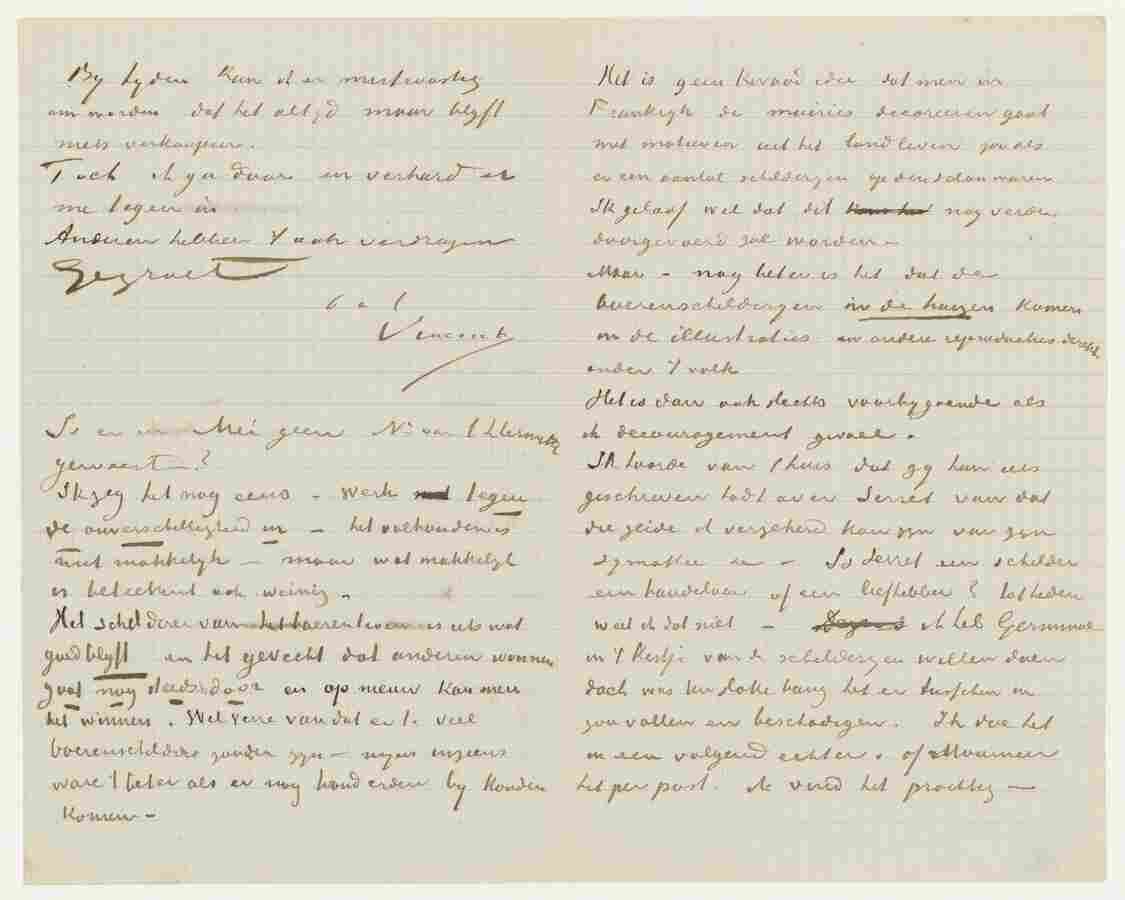 By tyden kan ik er mistroostig
om worden dat het altyd maar blyft
niets verkoopen.
Toch ik ga door en verhard er
me tegen in
Anderen hebben 't ook verdragen
Gegroet
t. à t.
Vincent
Is er in Mei geen No van l'Illustr.
geweest?
Ik zeg het nog eens – werk tegen
de onverschilligheid in – het volhouden is
niet makkelyk – maar wat makkelyk
is beteekent ook weinig.
Het schilderen van het boerenleven is iets wat
goed blyft en het gevecht dat anderen wonnen
gaat nog steeds door en op nieuw kan men
het winnen. Wel verre van dat er te veel
boerenschilders zouden zyn – myns inziens
ware 't beter als er nog honderden by honden
komen –
Het is geen kwaad idee dat men in
Frankryk de mairies decoreeren gaat
met motieven uit het landleven zooals
er een aantal schilderyen op de salon waren
Ik geloof wel dat dit nog verder
doorgevoerd zal worden –
Maar – nog beter is het dat de
boerenschilderyen in de huizen komen
in de illustraties en andere reproducties direkt
onder 't volk
Het is dan ook slechts voorbygaande als
ik decouragement gevoel.
Ik hoorde van thuis dat gy hun iets
geschreven hadt over Serret van dat
die zeide ik verzekerd kan zyn van zyn
sympathie &c – Is Serret een schilder
een handelaar of een liefhebber? tot heden
weet ik dat niet – ik heb Germinal
in 't kistje van de schilderyen willen doen
doch was ten slotte bang het er tusschen in
zou vallen en beschadigen. Ik doe het
in een volgend echter. of stuur
het per post. ik vind het prachtig –